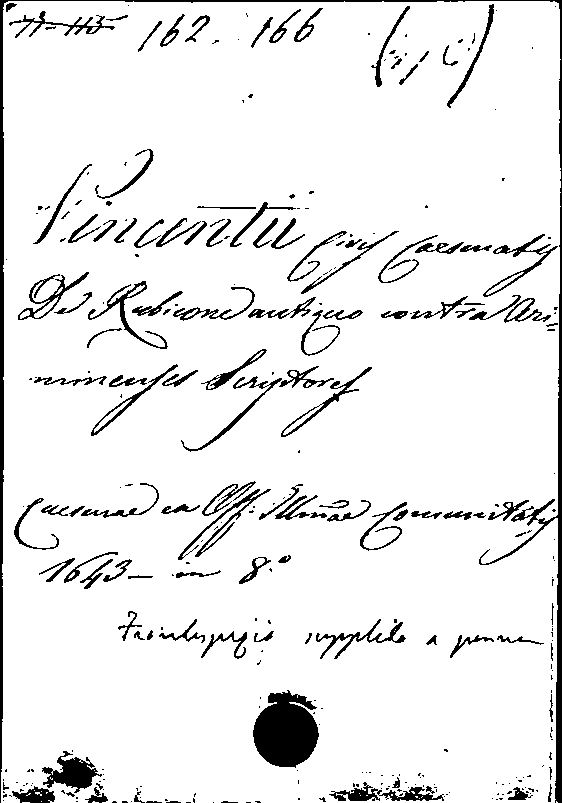 77-113 162. 166
Vincentii Civis Caesenatis
De Rubicone antiquo contra Ari=
minenses Scriptores
Caesenae ex Off: Illmae Comunitatis
1643 - in 8.o
Frontespizio supplito a penna